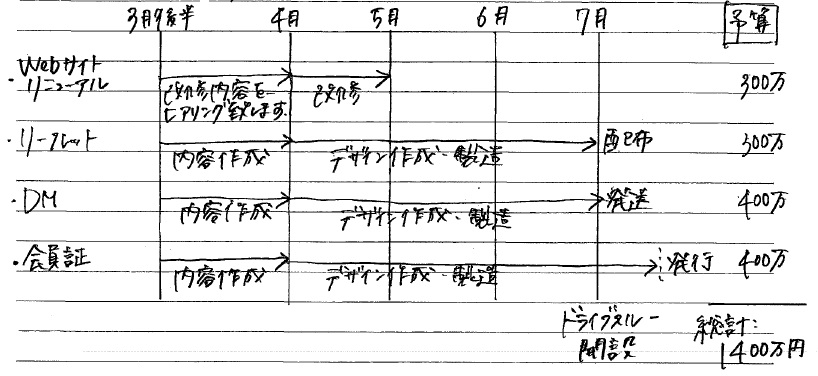 3月後半 4月 5月 6月 7月 予算
・Webサイト
リニューアル 300万
改修内容を 改修
ヒアリング致します
・リーフレット 配布 300万
内容作成 デザイン作成・製造
・DM 発送 400万
内容作成 デザイン作成・製造
・会員証 発行 400万
内容作成 デザイン作成・製造
ドライブスルー 総計:
開設 1400万円